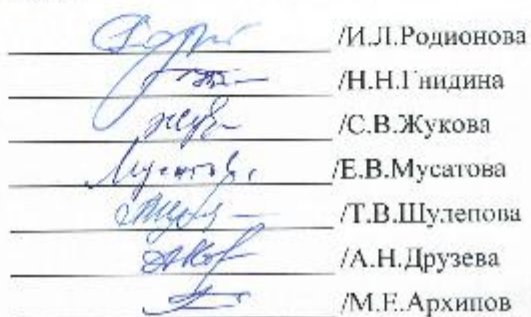 /И.Л.Родионова
/Н.Н.Гнидина
/С.В.Жукова
/Е.В.Мусатова
/Т.В.Шулепова
/А.Н.Друзева
/М.Е.Архипов